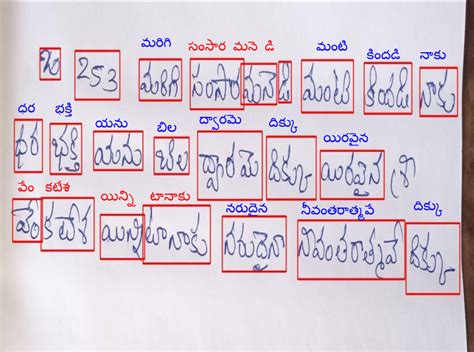 మరిగి సంసార మనె డి మంటి కిందడి నాకు
253 మరిగి సంసారమనెడి మంటి కిందడి నాకు
ధర భక్తి యను బిల ద్వారమె దిక్కు యిరవైన
ధర భక్తి యను బిల ద్వారమె దిక్కు యిరవైన శ్రీ
వేం కటేశ యిన్ని టానాకు నరుదైన నీవంతరాత్మవే దిక్కు
వేంకటేశ యిన్నిటానాకు నరుదైనా నీవంతరాత్మవే దిక్కు